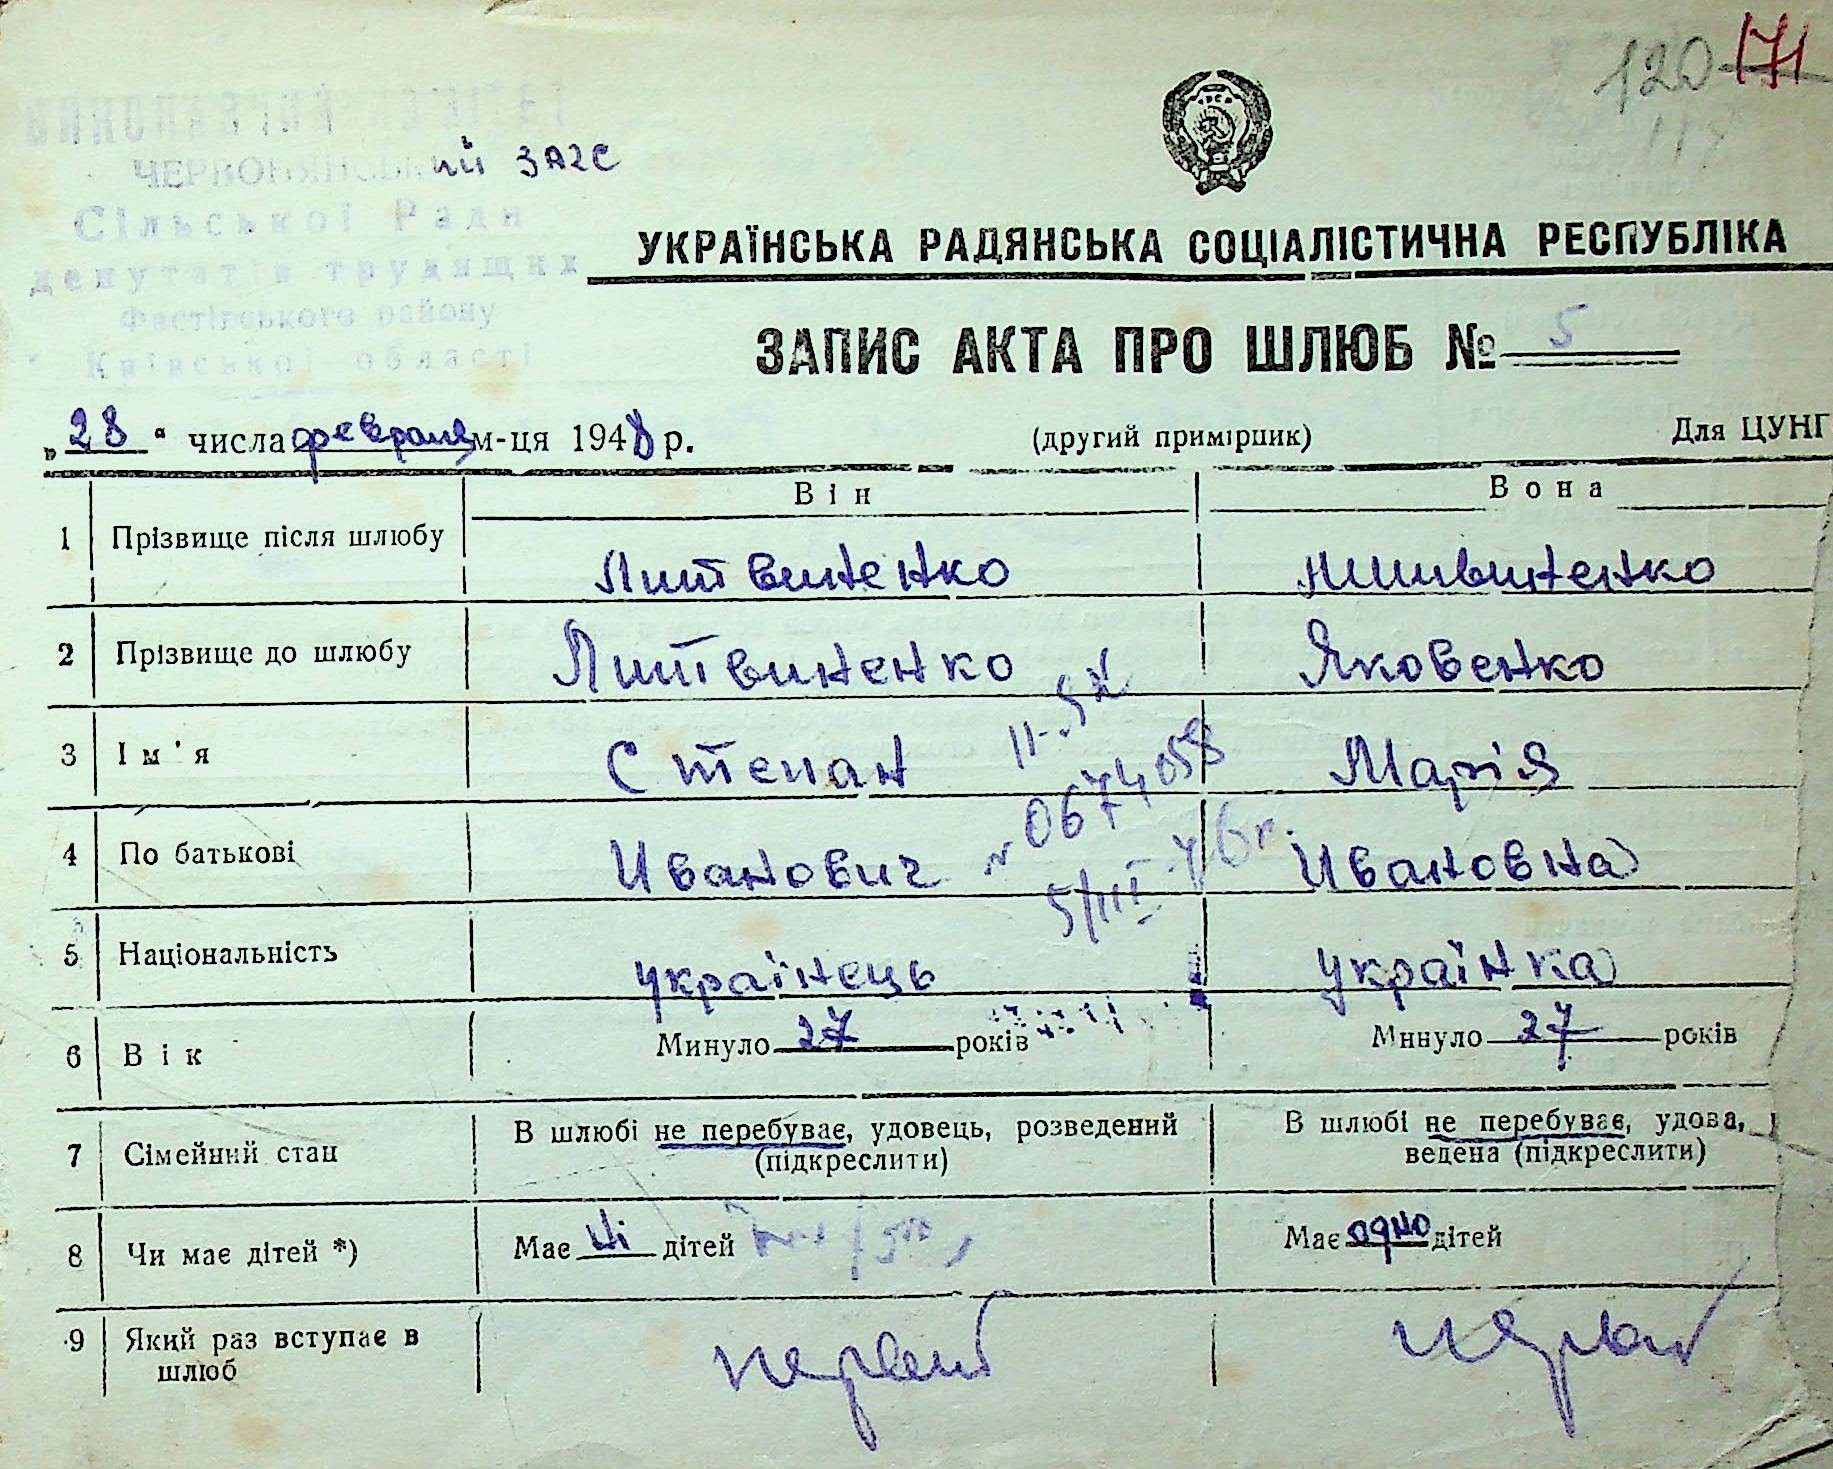 120 171
117
ВИКОНАВЧИЙ КОМІТЕТ
ий ЗАГС
Сільської Ради
депутатів трудящих
Фастівського району
Київської області
УКРАЇНСЬКА РАДЯНСЬКА СОЦІАЛІСТИЧНА РЕСПУБЛІКА
ЗАПИС АКТА ПРО ШЛЮБ № 5
„28“ числа февраля м-ця 1948 р. (другий примірник) Для ЦУНГ
Він Вона
1 Прізвище після шлюбу Литвиненко Литвиненко
2 Прізвище до шлюбу Литвиненко Яковенко
3 Ім'я Степан Марія
4 По батькові Иванович Ивановна
№ 0674058
5/III 76г.
5 Національність українець українка
6 Вік Минуло 27 років Минуло 27 років
7 Сімейний стан В шлюбі не перебуває, удовець, розведений (підкреслити) В шлюбі не перебуває, удова, ведена (підкреслити)
8 Чи має дітей *) Має ні дітей Має одно дітей
9 Який раз вступає в шлюб первый